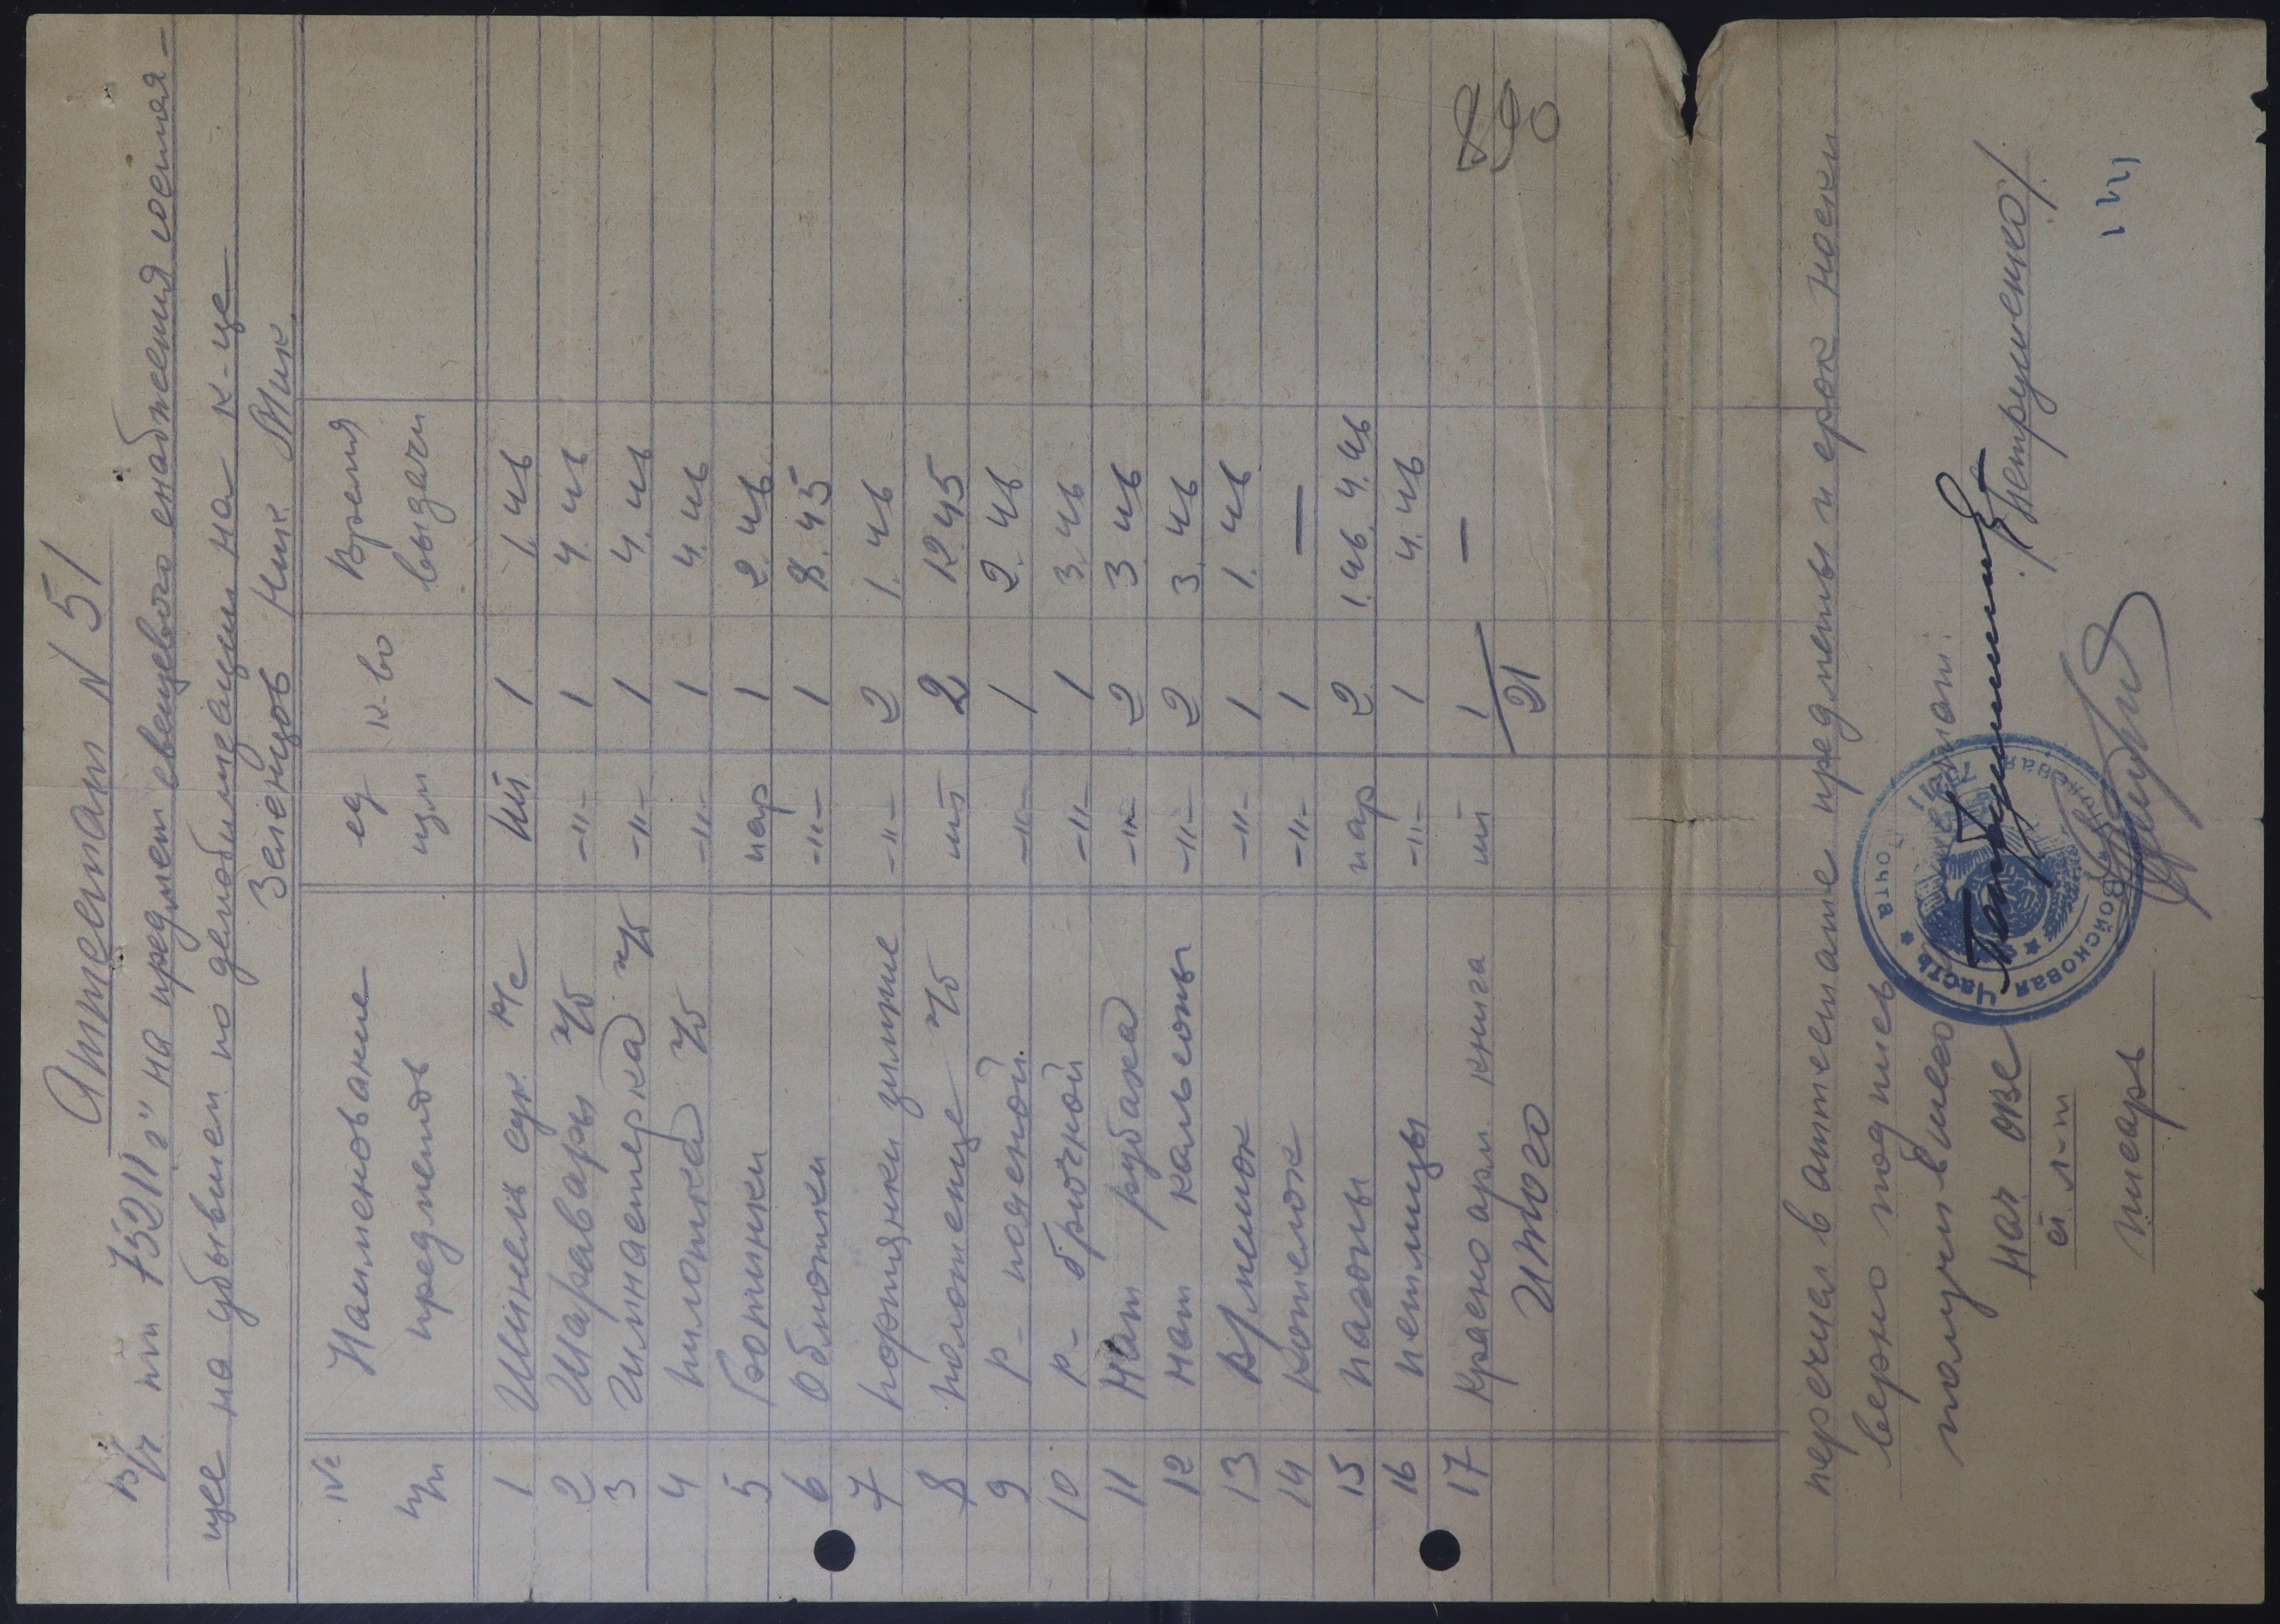 Аттестат N 51
В/ч пп 75211 "г" на предмет евещевого снабжения состоя-
щее на убывшем по демобилизации на к-це
Зеленцов Ник Мик.
№ п/п Наименование предметов ед изм к-во Время выдачи
1 Шинель сук. р/с шт 1 1. 46
2 Шаравары х/б -"- 1 4. 46
3 Гимнастерка х/б -"- 1 4. 46
4 пилотка х/б -"- 1 4. 46
5 Ботинки пар 1 2. 46
6 Обмотки -"- 1 8. 45
7 портянки зимние -"- 2 1. 46
8 полотенце х/б шт 2 12. 45
9 Р- поясной -"- 1 2. 46
10 Р- брючной -"- 1 3. 46
11 Нат рубаха -"- 2 3 46
12 Нат кальсоны -"- 2 3. 46
13 В/мешок -"- 1 1. 46
14 Котелок -"- 1 —
15 Погоны пар 2 1. 46. 4. 46
16 Петлицы -"- 1 4. 46
17 Красноарм. книга шт 1 —
Итого 21
890
перечисл в аттестате предметы и срок носки
верно подпись
получ в
Полевая Почта 75211
Войсковая Часть
нач ОВС /Петрушенко/.
ст л-т
писарь